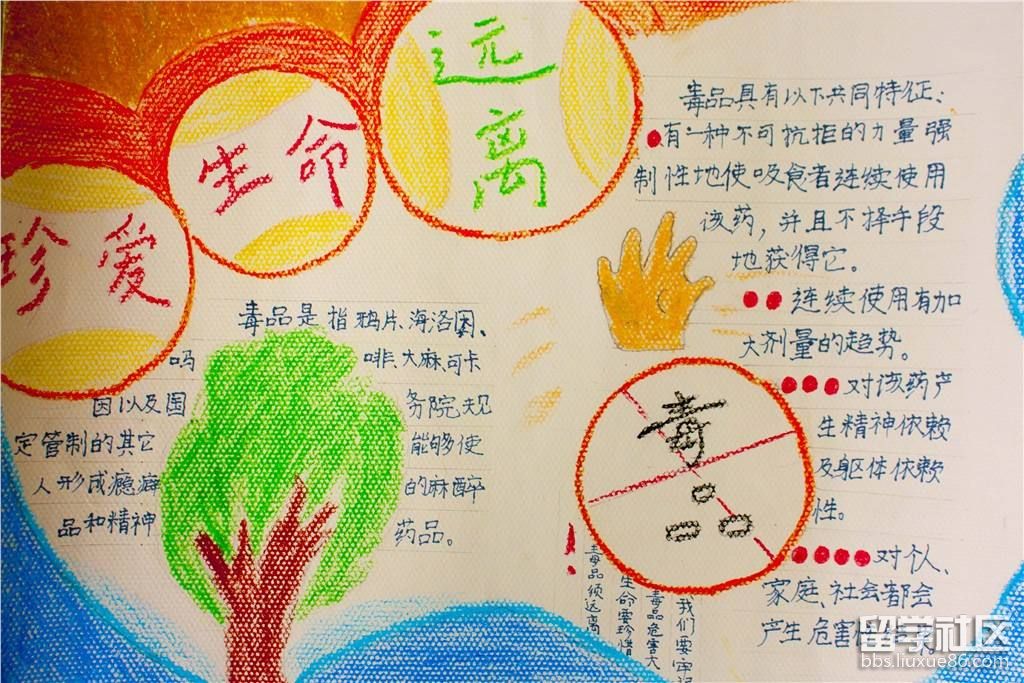 珍爱
生命
远
离
毒品是指鸦片、海洛因、
吗啡、大麻、可卡
因以及国务院规
定管制的其它能够使
人形成瘾癖的麻醉
品和精神药品。
毒品具有以下共同特征:
●有一种不可抗拒的力量强
制性地使吸食者连续使用
该药，并且不择手段
地获得它。
●●连续使用有加
大剂量的趋势。
●●●对该药产
生精神依赖
及躯体依赖
性。
●●●●对个人、
家庭、社会都会
产生危害
毒
品
!
毒品须远离
生命要珍惜
毒品危害大
我们要牢记
留学社区
bbs.liuxue86.com